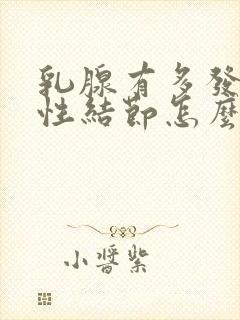 乳腺有多發
性結節怎麼
小醬紫